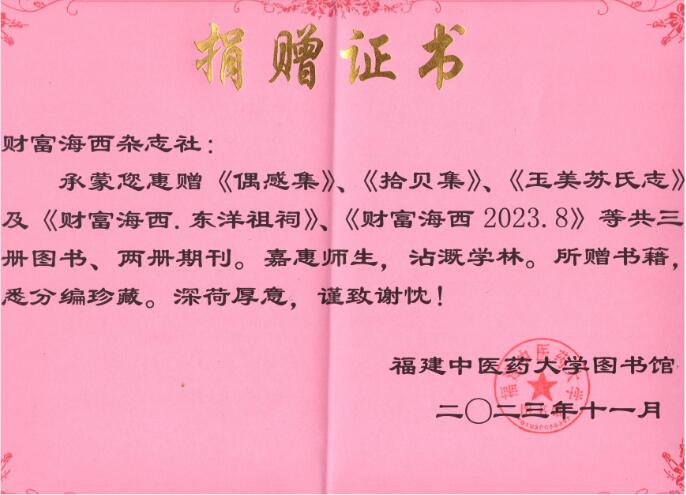 捐赠证书
财富海西杂志社：
承蒙您惠赠《偶感集》、《拾贝集》、《玉美苏氏志》
及《财富海西.东洋祖祠》、《财富海西 2023.8》等共三
册图书、两册期刊。嘉惠师生，沾溉学林。所赠书籍，
悉分编珍藏。深荷厚意，谨致谢忱！
福建中医药大学图书馆
二〇二三年十一月
福建中医药大学